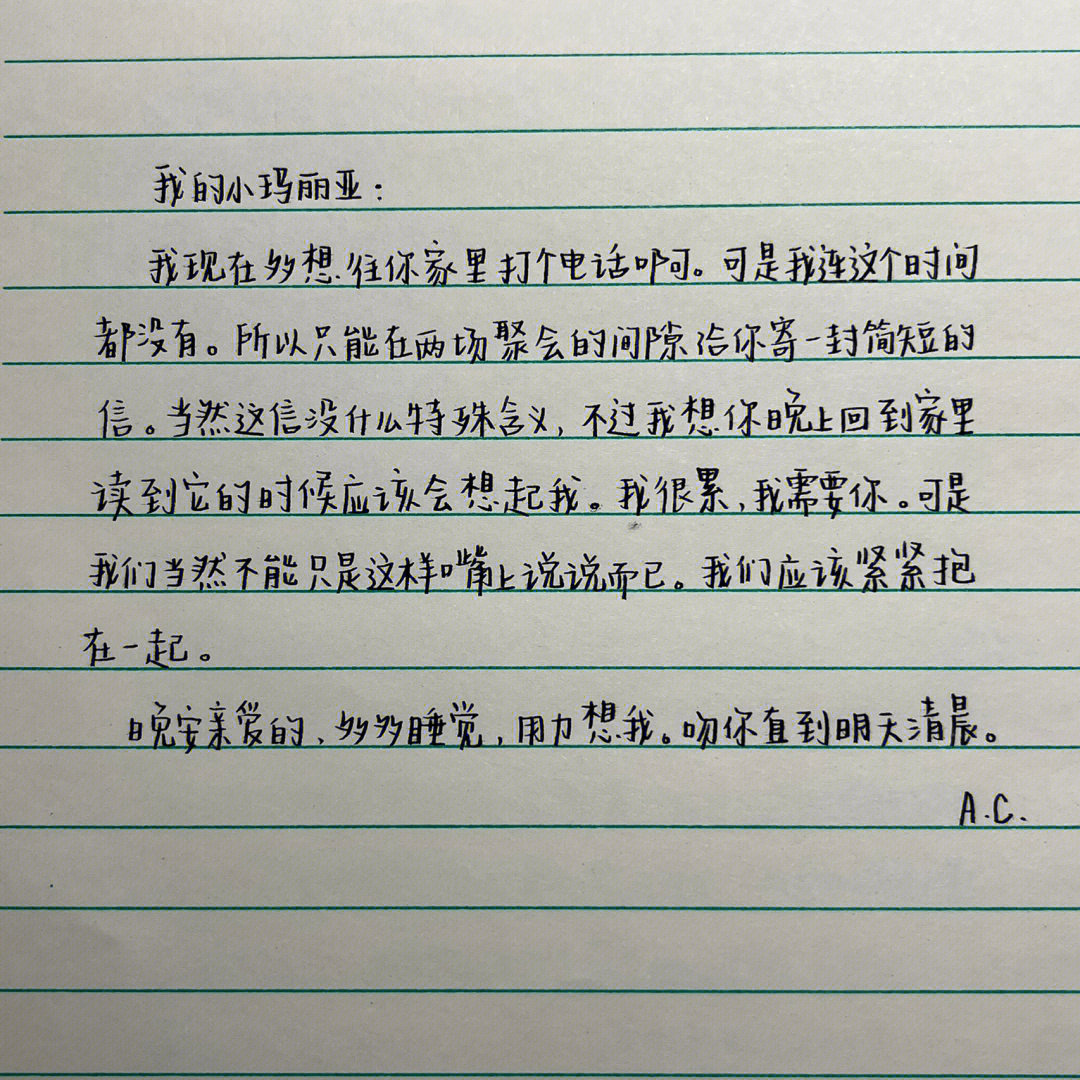 我的小玛丽亚：
我现在多想往你家里打个电话啊。可是我连这个时间
都没有。所以只能在两场聚会的间隙给你寄一封简短的
信。当然这信没什么特殊含义，不过我想你晚上回到家里
读到它的时候应该会想起我。我很累，我需要你。可是
我们当然不能只是这样嘴上说说而已。我们应该紧紧抱
在一起。
晚安亲爱的、多多睡觉，用力想我。吻你直到明天清晨。
A.C.